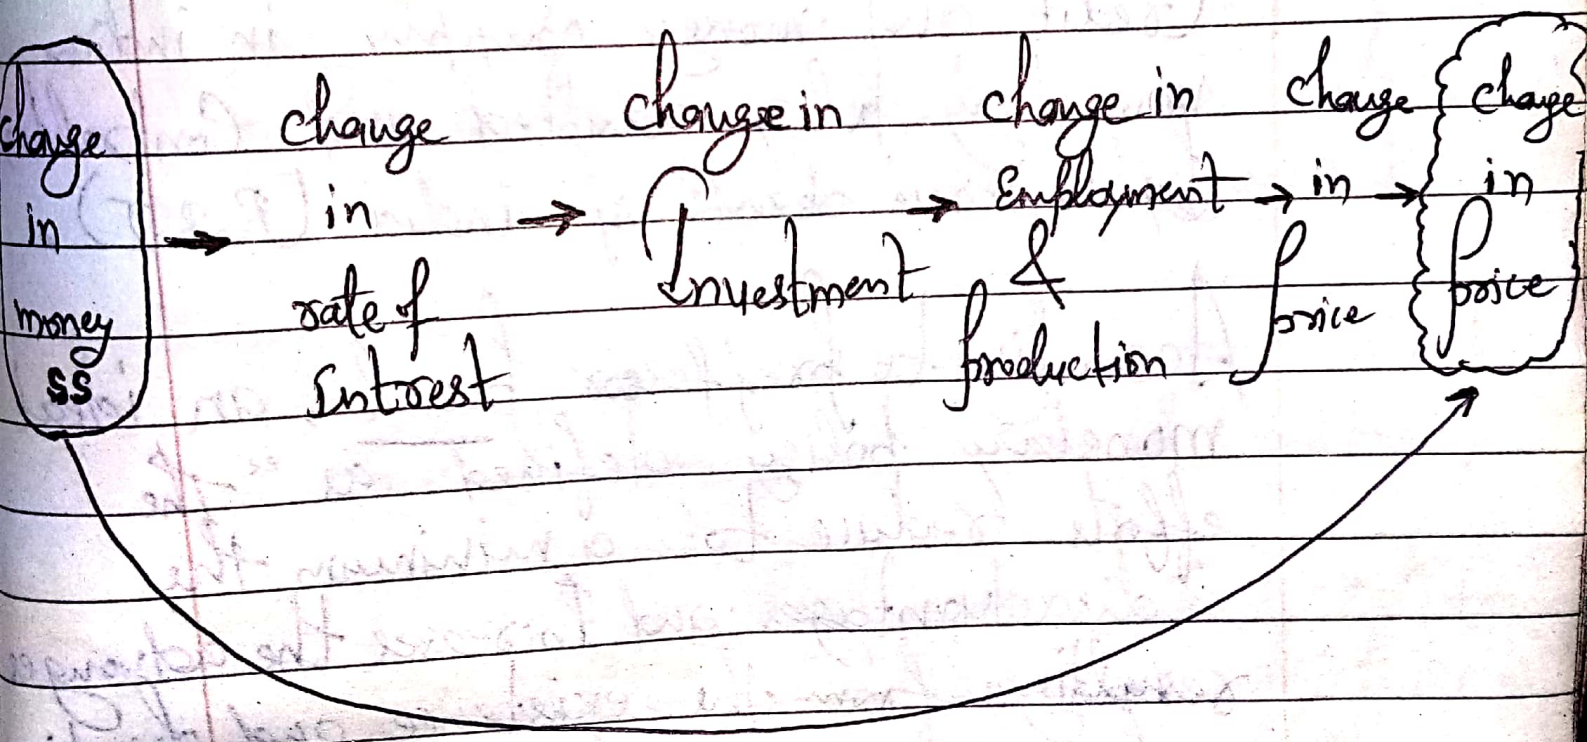 change
in
money
SS
→
change
in
rate of
Intrest
→
change in
Investment
→
change in
Employment
&
production
→
change
in
price
→
change
in
price